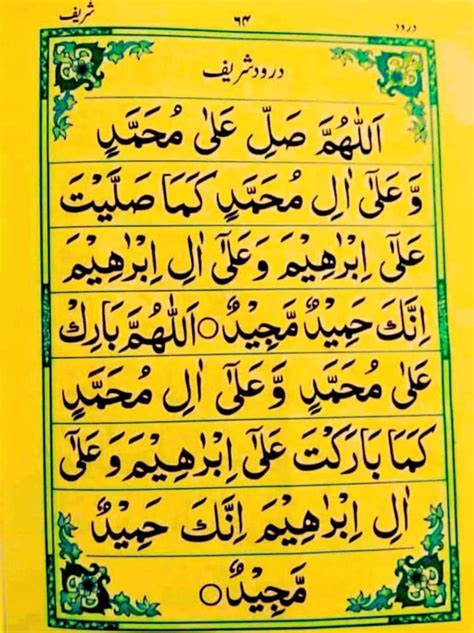 درود ۶۴ شریف
درود شریف
اَللّٰهُمَّ صَلِّ عَلٰى مُحَمَّدٍ
وَّ عَلٰٓى اٰلِ مُحَمَّدٍ كَمَا صَلَّيْتَ
عَلٰٓى اِبْرٰهِيْمَ وَ عَلٰٓى اٰلِ اِبْرٰهِيْمَ
اِنَّكَ حَمِيْدٌ مَّجِيْدٌ○ اَللّٰهُمَّ بَارِكْ
عَلٰى مُحَمَّدٍ وَّ عَلٰٓى اٰلِ مُحَمَّدٍ
كَمَا بَارَكْتَ عَلٰٓى اِبْرٰهِيْمَ وَ عَلٰٓى
اٰلِ اِبْرٰهِيْمَ اِنَّكَ حَمِيْدٌ
مَّجِيْدٌ○